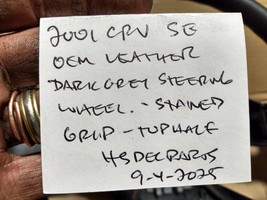 2001 CRV SE
OEM LEATHER
DARK GREY STEERING
WHEEL. - STAINED
GRIP - TOP HALF
HSDELPARTS
9-4-2025